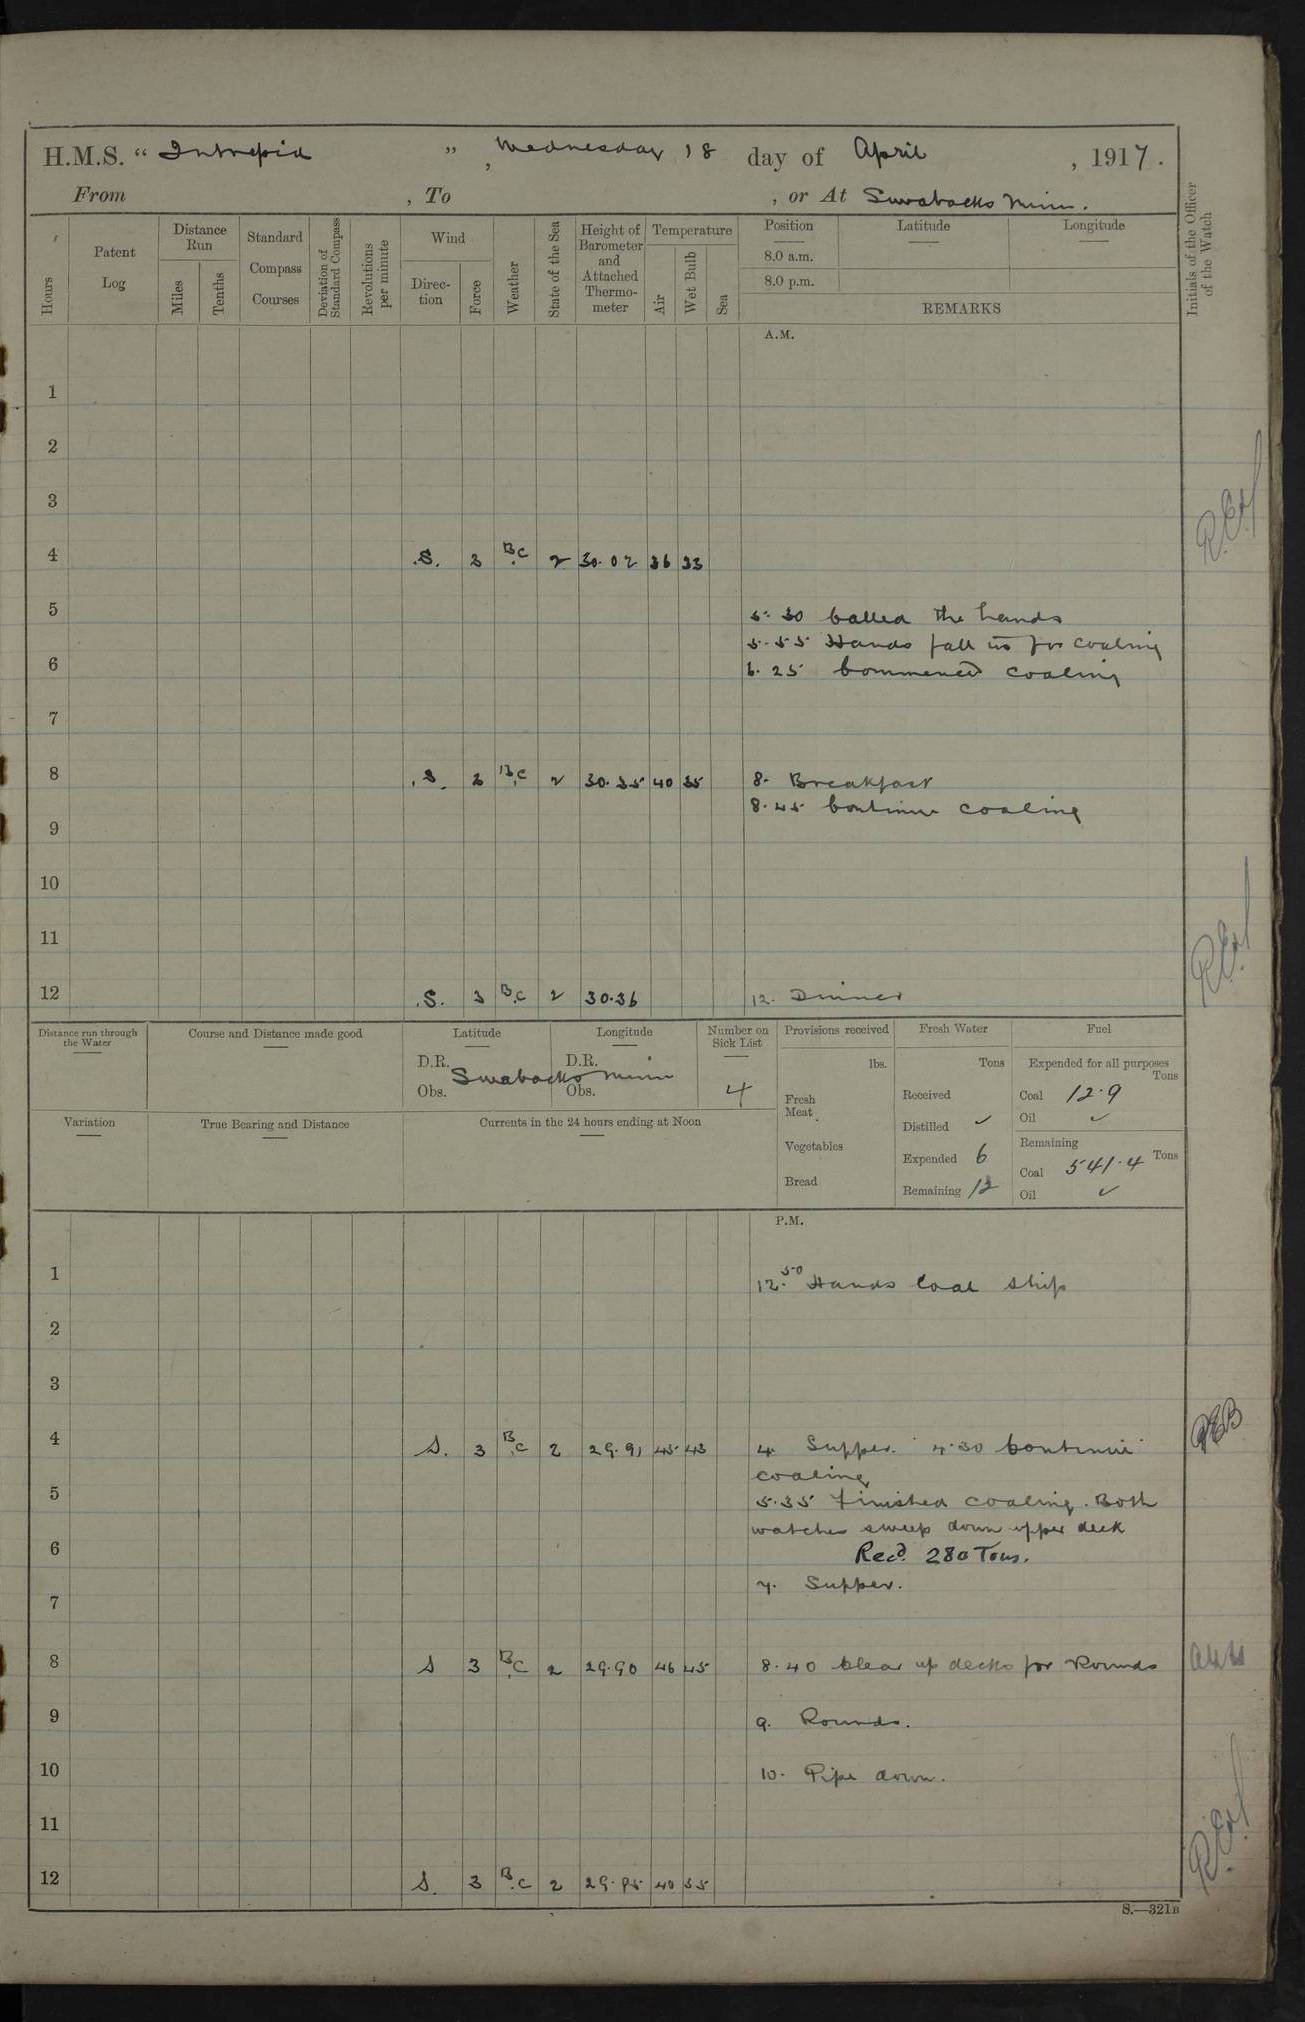 H.M.S. “ Intrepid ” , Wednesday 18 day of April , 1917.
From , To , or At Swarbacks Minn.
Hours
Patent Log
Distance Run
Miles
Tenths
Standard Compass Courses
Deviation of Standard Compass
Revolutions per minute
Wind
Direction
Force
Weather
State of the Sea
Height of Barometer and Attached Thermometer
Temperature
Air
Wet Bulb
Sea
Position Latitude Longitude
8.0 a.m.
8.0 p.m.
REMARKS
Initials of the Officer of the Watch
A.M.
1
2
3
4 S. 3 B.C 2 30.02 36 33
5 5.30 Called the hands
5.55 Hands fall in for coaling
6 6.25 Commenced coaling
7
8 S. 2 B.C 2 30.35 40 35 8. Breakfast
8.45 Continue coaling
9
10
11
12 S. 3 B.C 2 30.36 12. Dinner
Distance run through the Water
Course and Distance made good
Latitude Longitude
D.R. D.R.
Swabacks Minn
Obs. Obs.
Number on Sick List
4
Provisions received
lbs.
Fresh Meat
Vegetables
Bread
Fresh Water
Tons
Received
Distilled ✓
Expended 6
Remaining 12
Fuel
Expended for all purposes
Tons
Coal 12.9
Oil ✓
Remaining
Tons
Coal 541.4
Oil ✓
Variation
True Bearing and Distance
Currents in the 24 hours ending at Noon
P.M.
1 12.50 Hands Coal ship
2
3
4 S. 3 B.C 2 29.91 45 43 4. Supper. 4.30 Continue
coaling
5 5.35 Finished coaling. Both
watches sweep down upper deck
6 Recd. 280 Tons.
7. Supper.
7
8 S 3 B.C 2 29.90 46 45 8.40 Clear up decks for Rounds
9 9. Rounds.
10 10. Pipe down.
11
12 S. 3 B.C 2 29.85 40 35
S.—321B